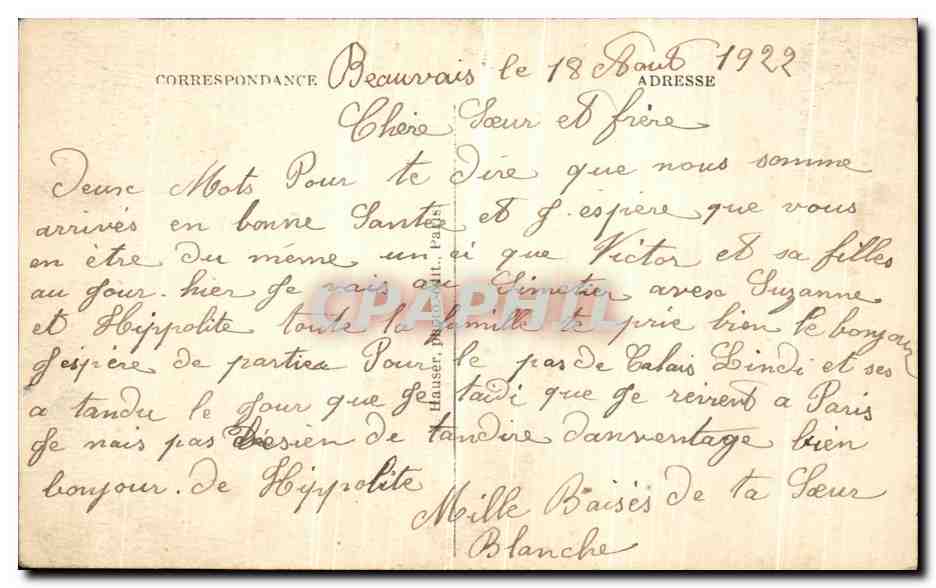 CORRESPONDANCE Beauvais le 18 Aout 1922
ADRESSE
Chère Sœur et frère
Deux Mots Pour te dire que nous somme
arrivés en bonne Santé et J. espère que vous
en être du même un ci que Victor et sa filles
au jour. hier Je vais au Simetier avex Suzanne
et Hippolite toute la famille te prie bien le bonjour
J'espère de partiea Pour le pas de Calais Lindi et ses
a tandu le Jour que Je taidi que Je reirent a Paris
Je nais pas Désien de tandire danventage bien
bonjour. de Hippolite
Mille Baisés de ta Sœur
Blanche
Hauser, photo-édit., Paris
CPAPHIL